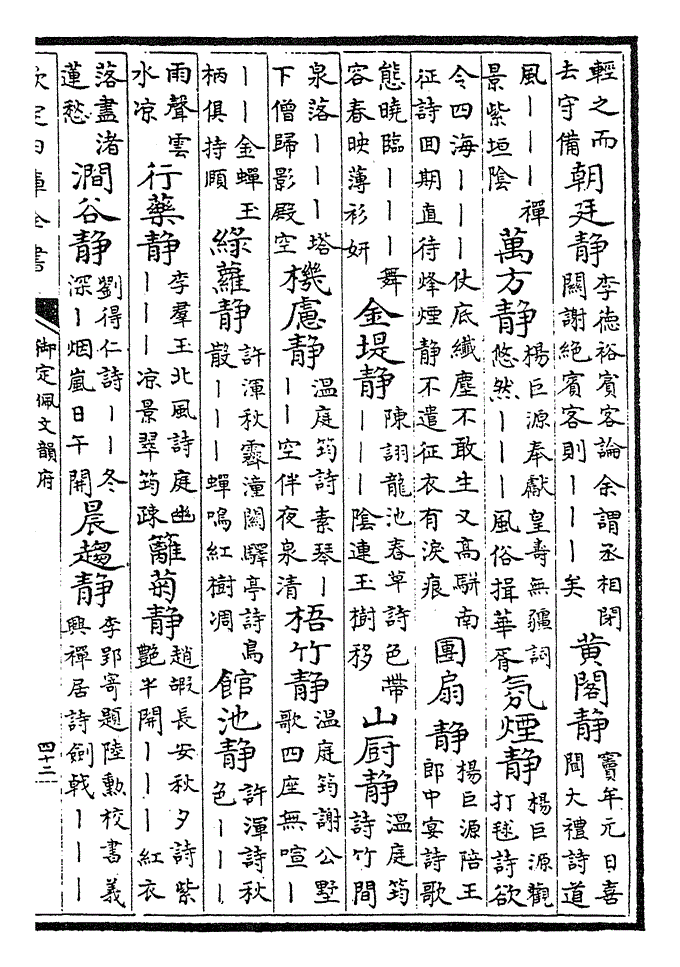 輕之而去守備朝廷静李德裕賓客論余謂丞相閉關謝絶賓客則丨丨丨矣黄閣静竇年元日喜聞大禮詩道
風丨丨丨禪景紫垣陰萬方静楊巨源奉獻皇壽無疆詞悠然丨丨丨風俗揖華胥氛煙静楊巨源觀打毬詩欲
令四海丨丨丨仗底纎塵不敢生又高駢南征詩囬期直待烽煙静不遣征衣有淚痕團扇静楊巨源陪王郎中宴詩歌
態曉臨丨丨丨舞容春映薄衫妍金堤静陳詡龍池春草詩色帶丨丨丨陰連玉樹移山厨静温庭筠詩竹間
泉落丨丨丨塔下僧歸影殿空機慮静温庭筠詩素琴丨丨丨空伴夜泉清梧竹静温庭筠謝公墅歌四座無喧丨
丨丨金蟬玉柄俱持頤綠蘿静許渾秋霽潼關驛亭詩鳥散丨丨丨蟬鳴紅樹凋館池静許渾詩秋色丨丨丨
雨聲雲水凉行藥静李羣玉北風詩庭幽丨丨丨凉景翠筠疎籬菊静趙嘏長安秋夕詩紫艶半開丨丨丨紅衣
落盡渚蓮愁澗谷静劉得仁詩丨丨冬深丨烟嵐日午開晨趨静李郢寄題陸勲校書義興禪居詩劍戟丨丨丨
欽定四庫全書
御定佩文韻府
四十二